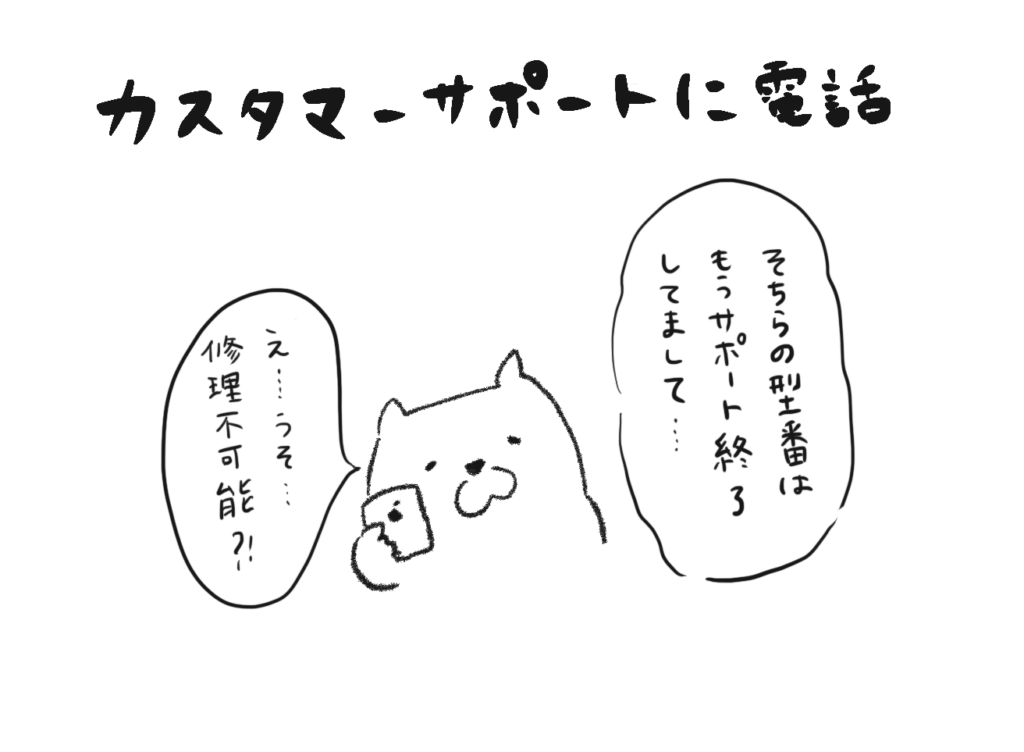 カスタマーサポートに電話
そちらの型番は
もうサポート終了
してまして…
え…うそ…
修理不可能?!